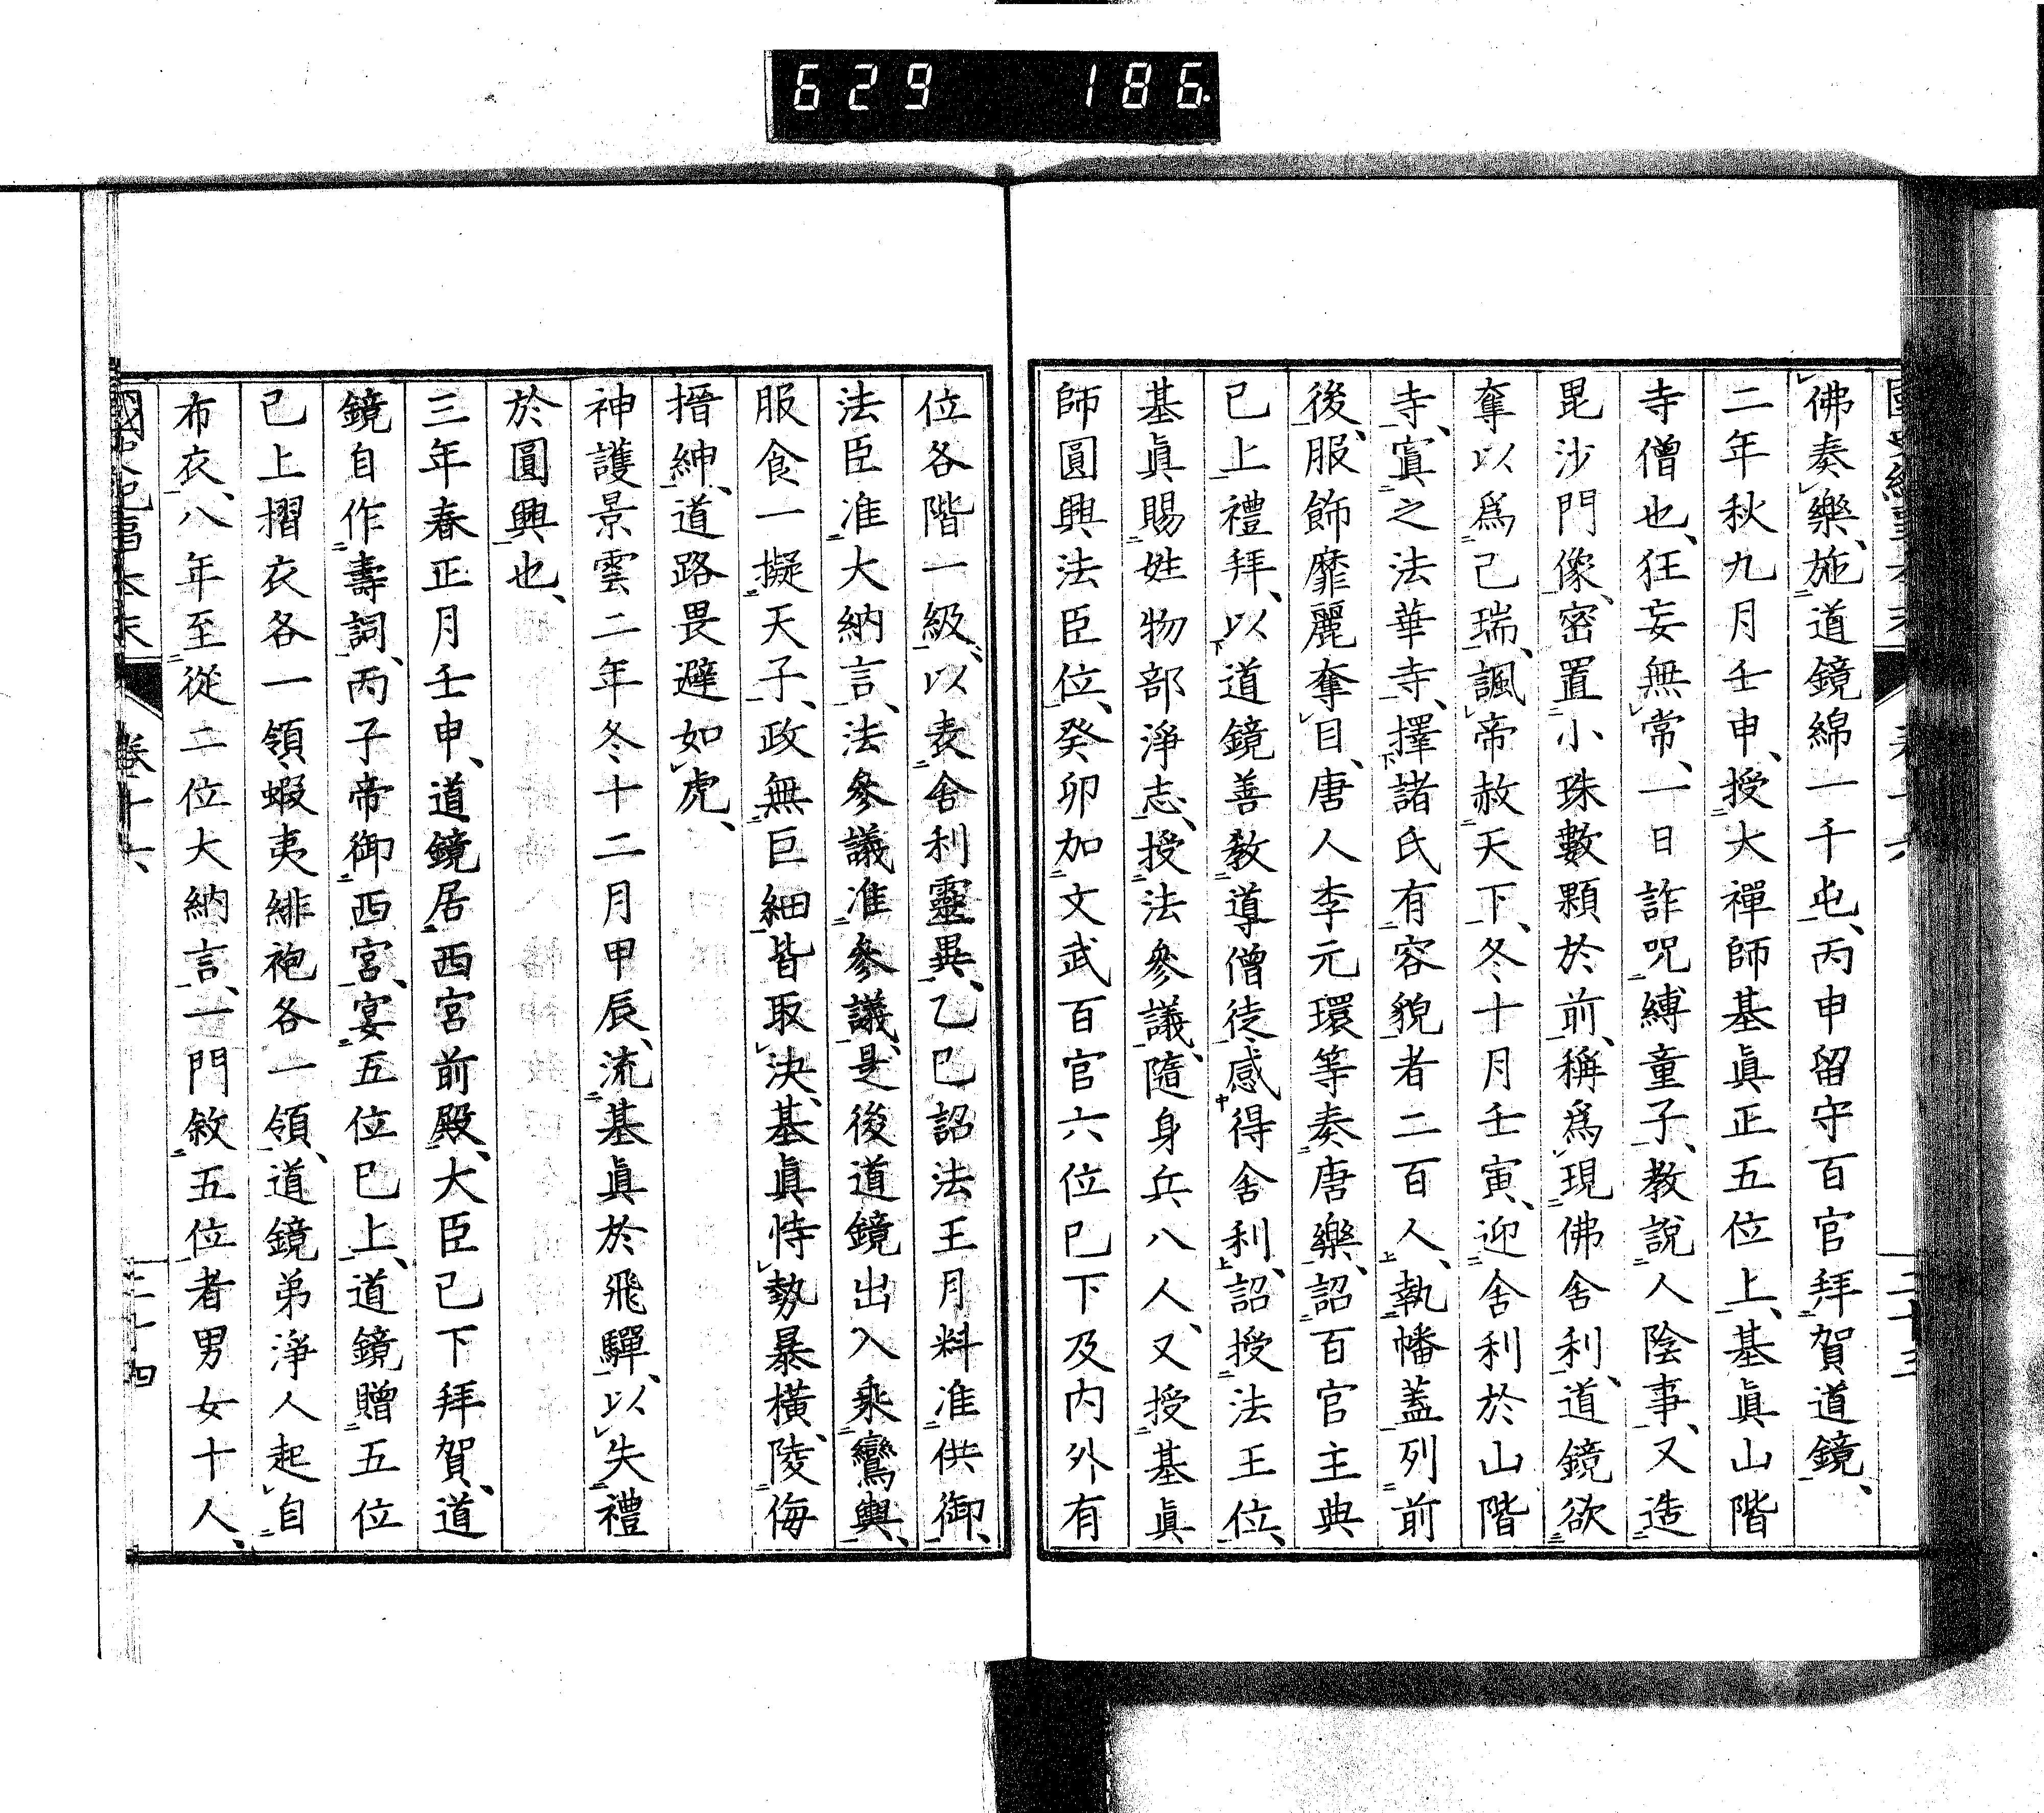 629 186
佛奏樂、施道鏡綿一千屯、丙申留守百官拜賀道鏡、
二年秋九月壬申、授大禪師基眞正五位上、基眞山階
寺僧也、狂妄無常、一日詐咒縛童子、教說人陰事、又造
毘沙門像、密置小珠數顆於前、稱爲現佛舍利、道鏡欲
奪以爲己瑞、諷帝赦天下、冬十月壬寅、迎舍利於山階
寺、寘之法華寺、擇諸氏有容貌者二百人、執幡蓋列前
後、服飾靡麗奪目、唐人李元環等奏唐樂、詔百官主典
已上禮拜、以道鏡善教導僧徒感得舍利、詔授法王位、
基眞賜姓物部淨志、授法參議、隨身兵八人、又授基眞
師圓興法臣位、癸卯加文武百官六位已下及內外有
位各階一級、以表舍利靈異、乙巳詔法王月料准供御、
法臣准大納言、法參議准參議、是後道鏡出入乘鸞輿、
服食一擬天子、政無巨細皆取決、基眞恃勢暴橫、陵侮
搢紳、道路畏避如虎、
神護景雲二年冬十二月甲辰、流基眞於飛驒、以失禮
於圓興也、
三年春正月壬申、道鏡居西宮前殿、大臣已下拜賀、道
鏡自作壽詞、丙子帝御西宮、宴五位已上、道鏡贈五位
已上摺衣各一領、蝦夷緋袍各一領、道鏡弟淨人起自
布衣、八年至從二位大納言、一門敘五位者男女十人、
國史紀事本末 卷十六 二十四